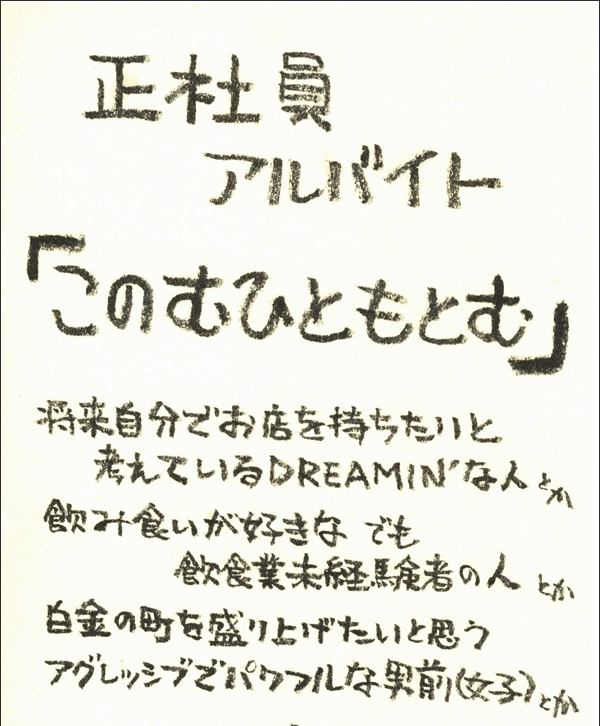 正社員
アルバイト
「このむひともとむ」
将来自分でお店を持ちたいと
考えているDREAMIN'な人とか
飲み食いが好きな でも
飲食業未経験者の人 とか
白金の町を盛り上げたいと思う
アグレッシブでパワフルな男前(女子)とか